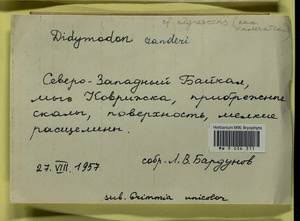 cf. nigrescens (
Didymodon zanderi
Северо-Западный Байкал,
мыс Коврижка, прибрежные
скалы, поверхность, мелкие
расщелины.
Herbarium MW, Bryophytes
27.VIII.1957
собр. Л.В. Бардунов
sub. Grimmia unicolor